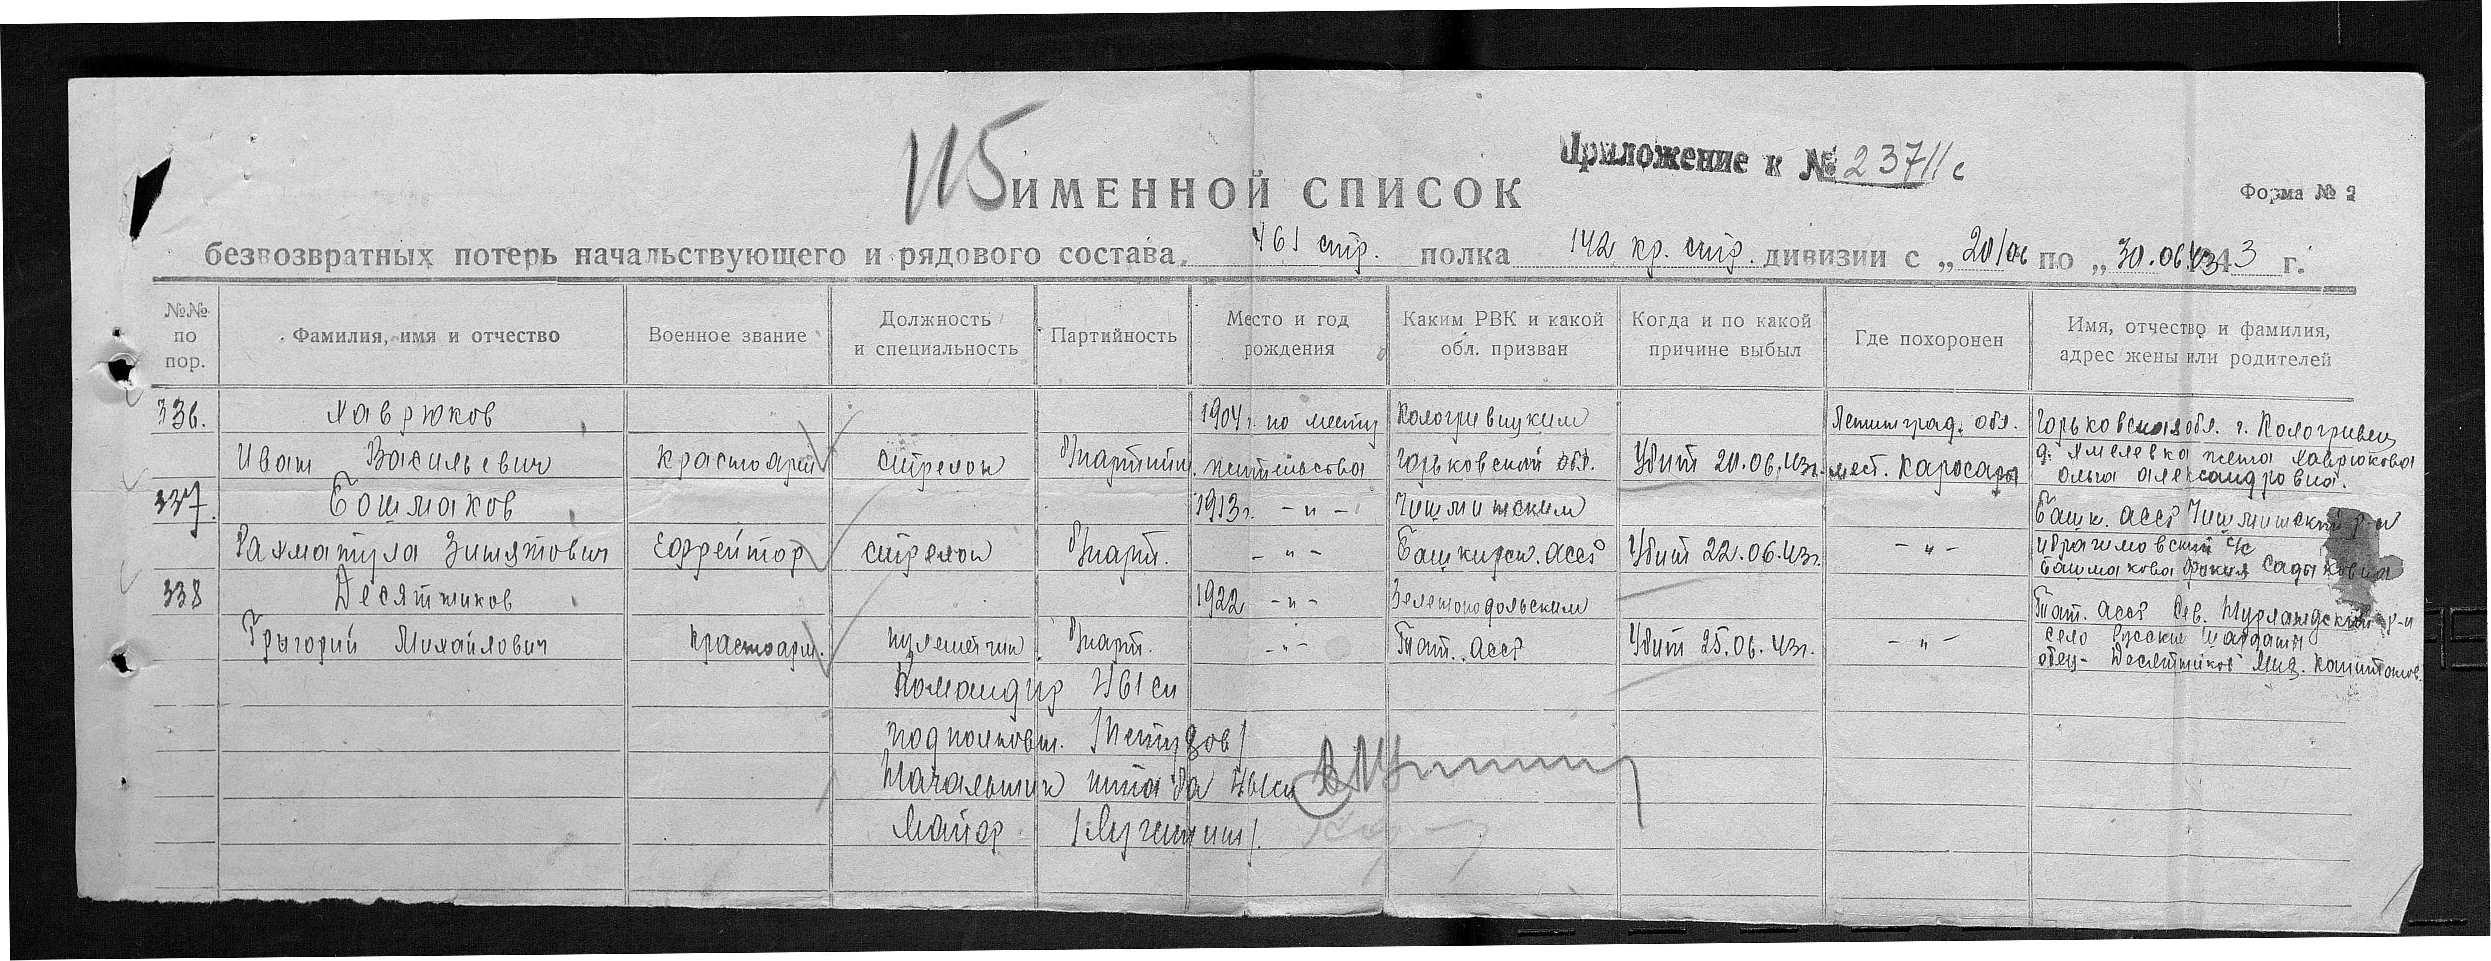 115
Приложение к № 23711с
ИМЕННОЙ СПИСОК
Форма № 2
безвозвратных потерь начальствующего и рядового состава 461 стр. полка 142 кр. стр. дивизии с „ 20/06 по „ 30.06.43 г.
№№ по пор.
Фамилия, имя и отчество
Военное звание
Должность и специальность
Партийность
Место и год рождения
Каким РВК и какой обл. призван
Когда и по какой причине выбыл
Где похоронен
Имя, отчество и фамилия, адрес жены или родителей
336. Лаврюков 1904г. по месту Кологривцким Ленинград. обл. Горьковская обл. г. Кологривец
Иван Васильевич Красноарм стрелок Б/партийн. жительства Горьковский обл. Убит 20.06.43г. мест. Каросары д. Амелевка жена Лаврюкова
Ольга Александровна.
337. Башмаков 1913г. -"- Чишминским Башк. АССР Чишминский р-н
Рахматула Зинятович Ефрейтор стрелок Б/парт. -"- Башкирск. АССР Убит 22.06.43г. -"- Ибрагимовский с/с
Башмакова Садыковна
338 Десятников 1922 -"- Зеленодольским Тат. АССР р-н
Григорий Михайлович Красноарм. пулеметчик Б/парт. -"- Тат. АССР Убит 25.06.43г. -"- село Русски
отец- Десятников Мих. Капитонов.
Командир 461 сп
подполковн. /
Начальник штаба 461сп
Майор /Лучинкин/.